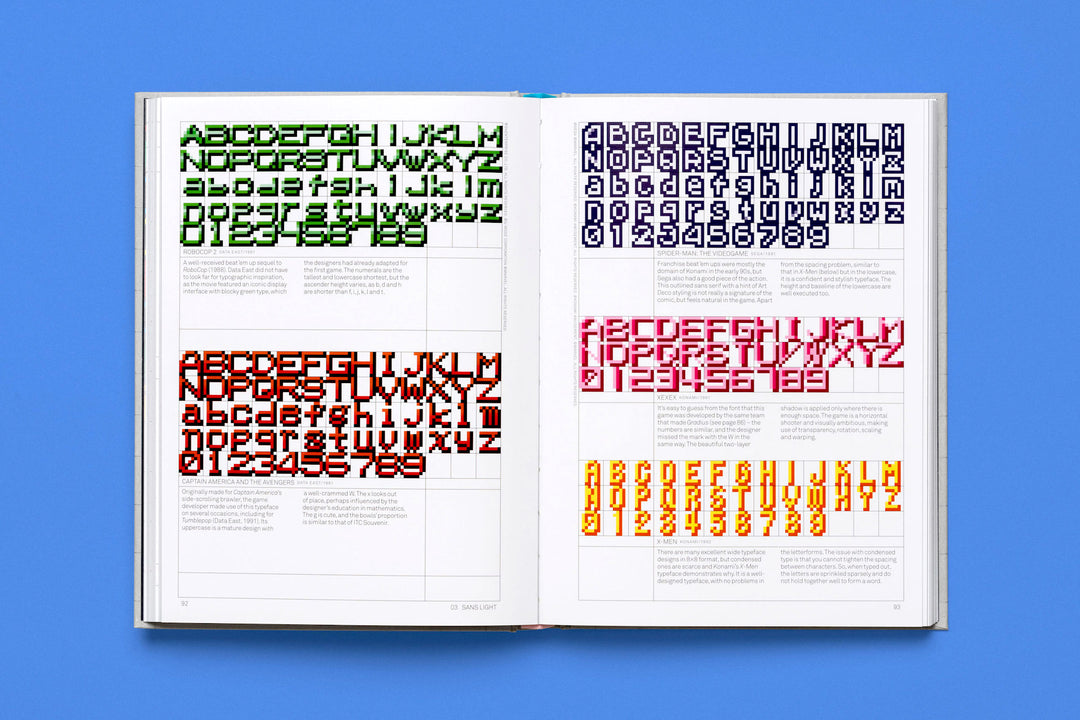 ABCDEFGHIJKLM
NOPQRSTUVWXYZ
abcdefghijklm
nopqrstuvwxyz
0123456789
ROBOCOP 2 DATA EAST/1991
A well-received beat 'em up sequel to
RoboCop (1988). Data East did not have
to look far for typographic inspiration,
as the movie featured an iconic display
interface with blocky green type, which
the designers had already adapted for
the first game. The numerals are the
tallest and lowercase shortest, but the
ascender height varies, as b, d and h
are shorter than f, i, j, k, l and t.
ABCDEFGHIJKLM
NOPQRSTUVWXYZ
abcdefghijklm
nopqrstuvwxyz
0123456789
CAPTAIN AMERICA AND THE AVENGERS DATA EAST/1991
Originally made for Captain America's
side-scrolling brawler, the game
developer made use of this typeface
on several occasions, including for
Tumblepop (Data East, 1991). Its
uppercase is a mature design with
a well-crammed W. The x looks out
of place, perhaps influenced by the
designer's education in mathematics.
The g is cute, and the bowls' proportion
is similar to that of ITC Souvenir.
92
03 SANS LIGHT
ABCDEFGHIJKLM
NOPQRSTUVWXYZ
abcdefghijklm
nopqrstuvwxyz
0123456789
SPIDER-MAN: THE VIDEOGAME SEGA/1991
Franchise beat 'em ups were mostly the
domain of Konami in the early 90s, but
Sega also had a good piece of the action.
This outlined sans serif with a hint of Art
Deco styling is not really a signature of the
comic, but feels natural in the game. Apart
from the spacing problem, similar to
that in X-Men (below) but in the lowercase,
it is a confident and stylish typeface. The
height and baseline of the lowercase are
well executed too.
ABCDEFGHIJKLM
NOPQRSTUVWXYZ
0123456789
XEXEX KONAMI/1991
It's easy to guess from the font that this
game was developed by the same team
that made Gradius (see page 66) – the
numbers are similar, and the designer
missed the mark with the W in the
same way. The beautiful two-layer
shadow is applied only where there is
enough space. The game is a horizontal
shooter and visually ambitious, making
use of transparency, rotation, scaling
and warping.
ABCDEFGHIJKLM
NOPQRSTUVWXYZ
0123456789
X-MEN KONAMI/1992
There are many excellent wide typeface
designs in 8×8 format, but condensed
ones are scarce and Konami's X-Men
typeface demonstrates why. It is a well-
designed typeface, with no problems in
the letterforms. The issue with condensed
type is that you cannot tighten the spacing
between characters. So, when typed out,
the letters are sprinkled sparsely and do
not hold together well to form a word.
93